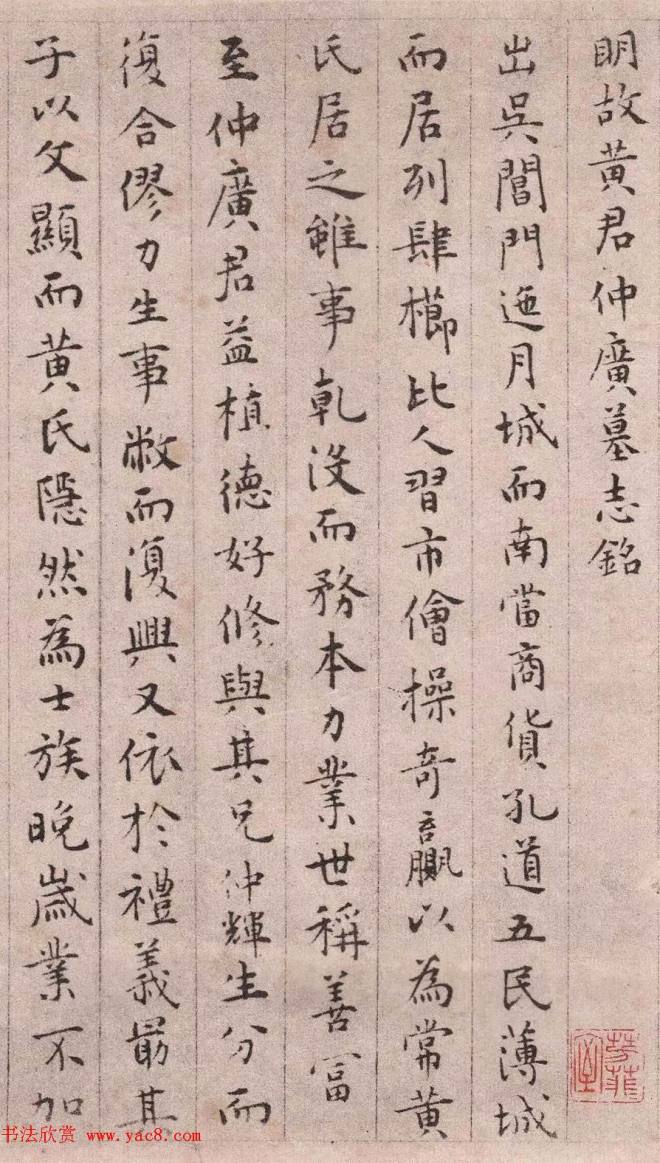 明故黄君仲廣墓志銘
出吳閶門迤月城而南當商貨孔道五民薄城
而居列肆櫛比人習市儈操奇贏以為常黄
氏居之雖事乹没而務本力業世稱善富
至仲廣君益植德好修與其兄仲輝生分而
復合僇力生事敝而復興又依於禮義最其
子以文顯而黄氏隠然為士族晚歲業不加
书法欣赏 www.yac8.com